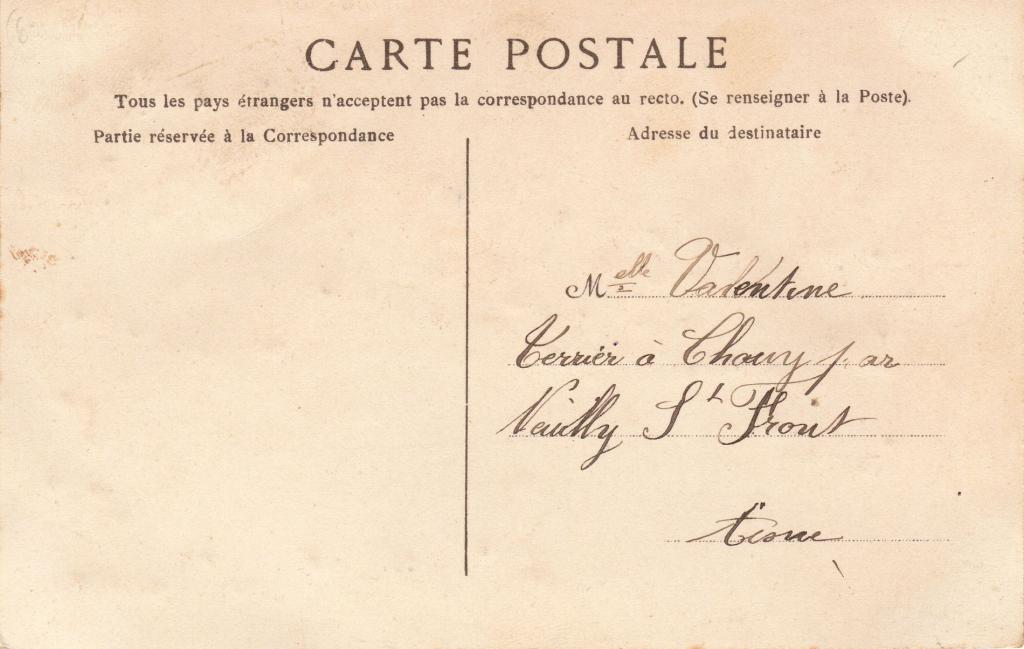 CARTE POSTALE
Tous les pays étrangers n'acceptent pas la correspondance au recto. (Se renseigner à la Poste).
Partie réservée à la Correspondance
Adresse du destinataire
Melle Valentine
Terrier à Chouy par
Neuilly St Front
Aisne